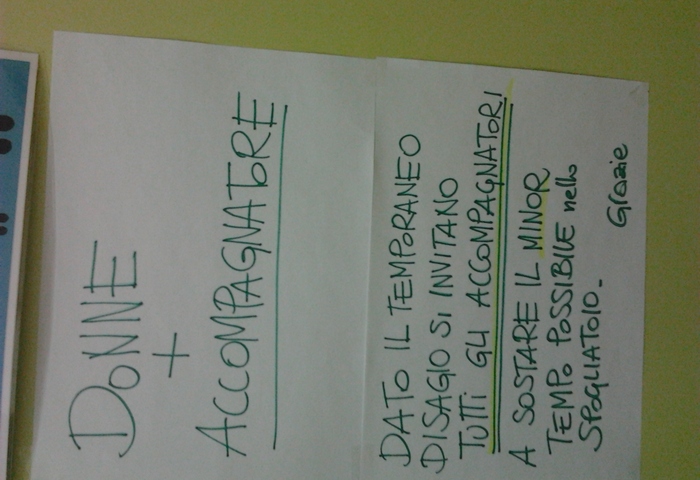 DONNE
+
ACCOMPAGNATORE
DATO IL TEMPORANEO
DISAGIO SI INVITANO
TUTTI GLI ACCOMPAGNATORI
A SOSTARE IL MINOR
TEMPO POSSIBILE nello
SPOGLIATOIO.
Grazie